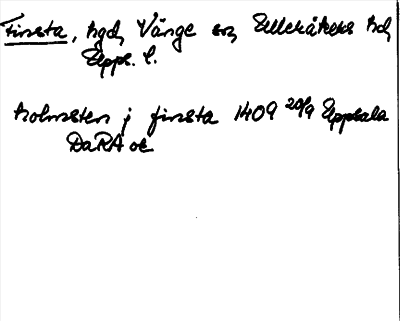 Finsta, hgd, Vänge sn, Ulleråkers hd,
Upps. l.
holmsten j finsta 1409 20/9 Uppsala
DaRA or